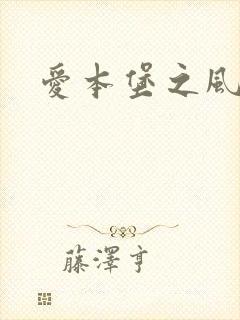 愛本堡之風
藤澤亨